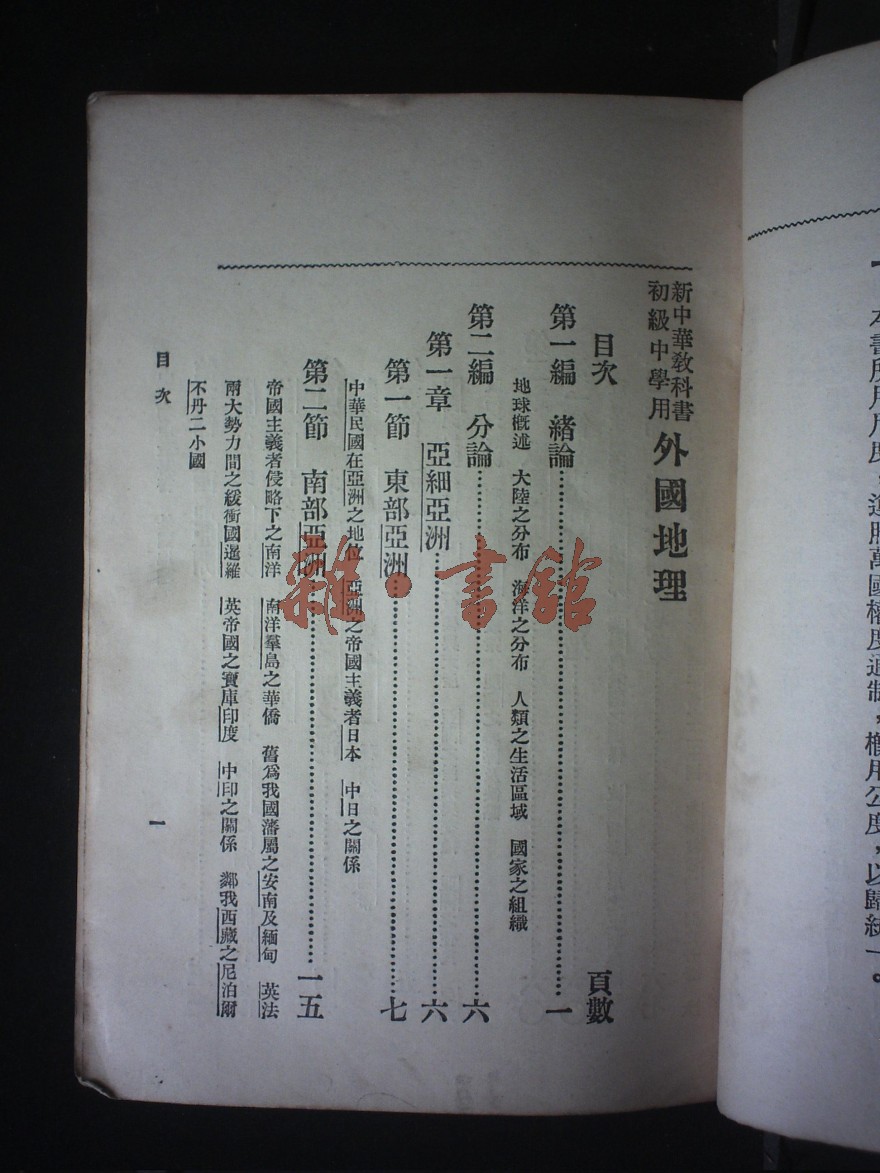 本書所用尺度，逆將萬國權度通制，權用公度，以歸統一。
新中華教科書
初級中學用
外國地理
目次 頁數
第一編 緒論 一
地球概述 大陸之分布 海洋之分布 人類之生活區域 國家之組織
第二編 分論 六
第一章 亞細亞洲 六
第一節 東部亞洲 七
中華民國在亞洲之地位 亞洲之帝國主義者日本 中日之關係
第二節 南部亞洲 一五
帝國主義者侵略下之南洋 南洋羣島之華僑 舊爲我國藩屬之安南及緬甸 英法
兩大勢力間之緩衝國暹羅 英帝國之寶庫印度 中印之關係 鄰我西藏之尼泊爾
不丹二小國
目次
一
雜·書館